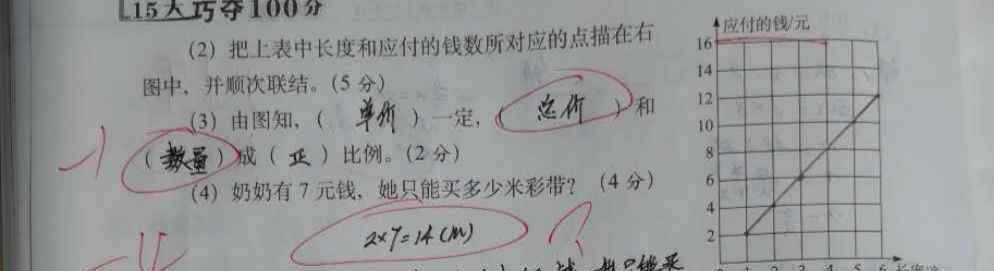 15天巧夺100分
(2) 把上表中长度和应付的钱数所对应的点描在右
图中，并顺次联结。(5 分)
(3) 由图知，( 单价 ) 一定，( 总价 ) 和
( 数量 ) 成 ( 正 ) 比例。(2 分)
(4) 奶奶有 7 元钱，她只能买多少米彩带？ (4 分)
2×7=14(m)
应付的钱/元
16
14
12
10
8
6
4
2
0 1 2 3 4 5 6